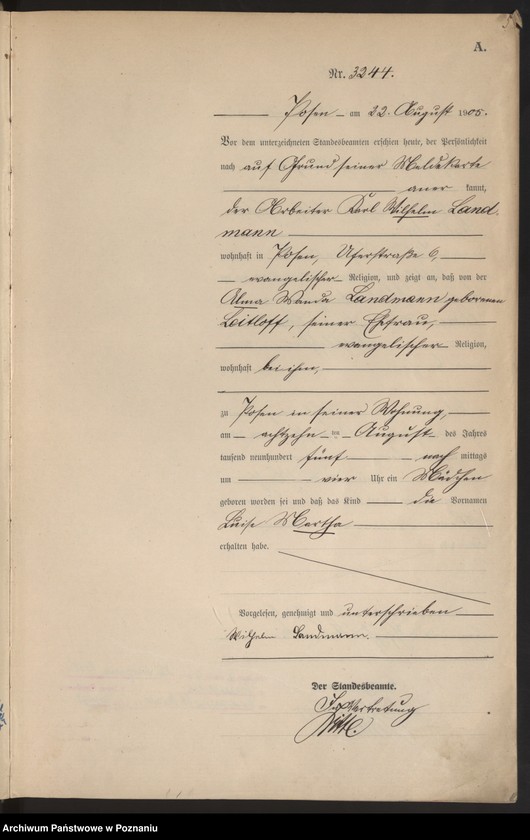 A.
Nr. 3244.
Posen am 22. August 1905.
Vor dem unterzeichneten Standesbeamten erschien heute, der Persönlichkeit
nach auf Grund seiner Meldekarte
aner kannt,
der Arbeiter Karl Wilhelm Land
mann
wohnhaft in Posen, Uferstraße 6,
evangelischer Religion, und zeigt an, daß von der
Alma Wanda Landmann geborenen
Leitloff, seiner Ehefrau,
evangelischer Religion,
wohnhaft bei ihm,
zu Posen in seiner Wohnung,
am achtzehn ten August des Jahres
tausend neunhundert fünf nach mittags
um vier Uhr ein Mädchen
geboren worden sei und daß das Kind die Vornamen
Luise Martha
erhalten habe.
Vorgelesen, genehmigt und unterschrieben
Wilhelm Landmann.
Der Standesbeamte.
In Vertretung
Archiwum Państwowe w Poznaniu